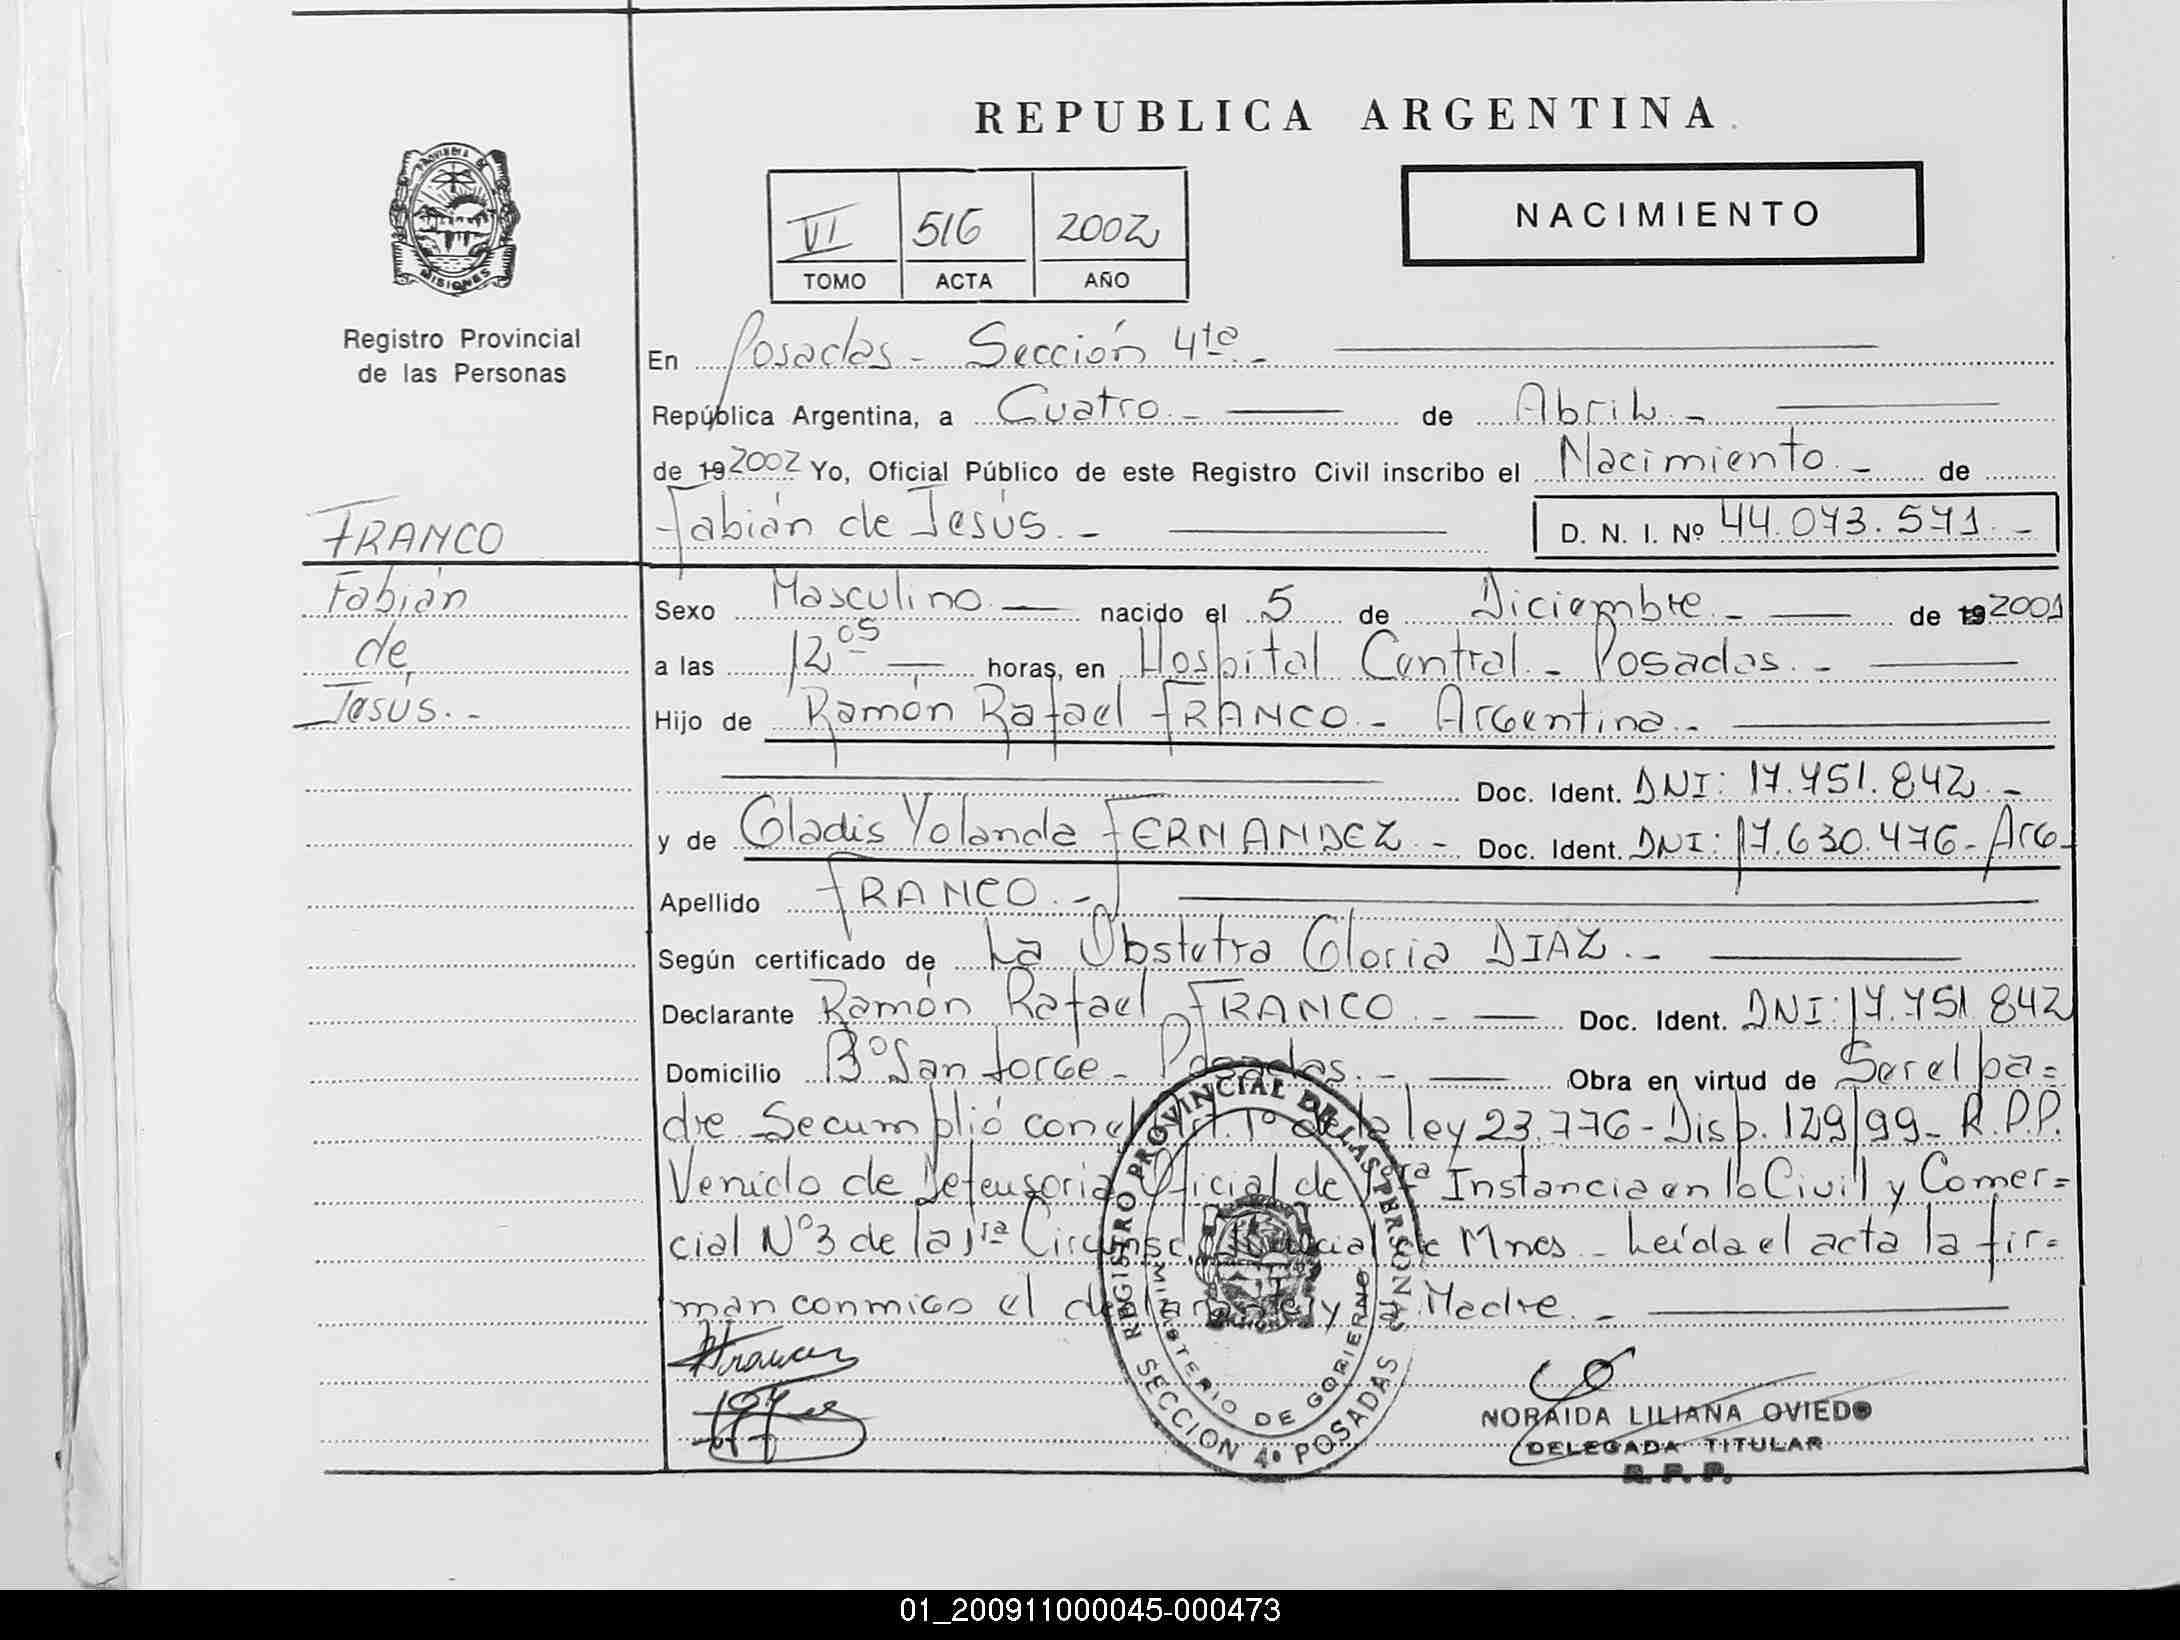 REPUBLICA ARGENTINA
PROVINCIA DE
MISIONES
VI 516 2002
TOMO ACTA AÑO
NACIMIENTO
Registro Provincial
de las Personas
En Posadas - Sección 4ta -
República Argentina, a Cuatro.- de Abril.-
de 19 2002 Yo, Oficial Público de este Registro Civil inscribo el Nacimiento.- de
FRANCO
Fabián de Jesús.-
D. N. I. Nº 44.073.571.-
Fabián
de
Jesús.-
Sexo Masculino.- nacido el 5 de Diciembre.- de 19 2001
a las 12 05 horas, en Hospital Central - Posadas.-
Hijo de Ramón Rafael FRANCO.- Argentina.-
Doc. Ident. DNI: 17.751.842.-
y de Gladis Yolanda FERNANDEZ.- Doc. Ident. DNI: 17.630.476- Arg-
Apellido FRANCO.-
Según certificado de La Obstetra Gloria DIAZ.-
Declarante Ramón Rafael FRANCO.- Doc. Ident. DNI: 17.751.842
Domicilio Bº San Jorge - Posadas.- Obra en virtud de Ser el pa=
dre Se cumplió con el Art. 1º de la ley 23.776 - Disp. 129/99- R.P.P.
Venido de Defensoria Oficial de 1ra Instancia en lo Civil y Comer=
cial Nº3 de la 1ra Circunsc. Judicial de Mnes - Leída el acta la fir=
man conmigo el declarante y la Madre.-
REGISTRO PROVINCIAL DE LAS PERSONAS
MINISTERIO DE GOBIERNO
SECCION 4ª POSADAS
NORAIDA LILIANA OVIEDO
DELEGADA TITULAR
R. P. P.
01_200911000045-000473